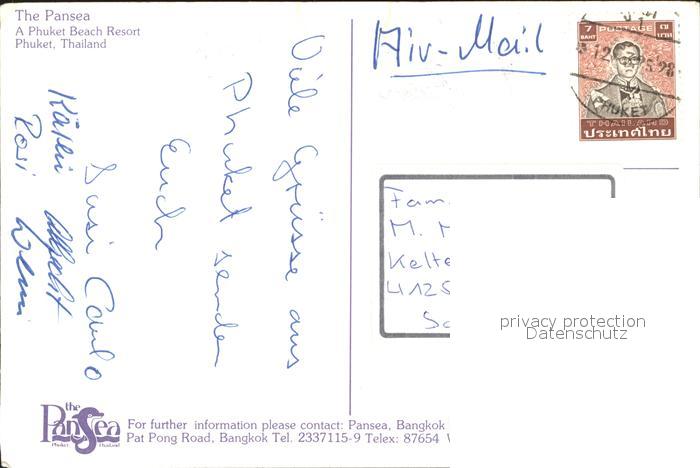 The Pansea
A Phuket Beach Resort
Phuket, Thailand
Viele Grüsse aus
Phuket senden
Euch
Susi Carlo
Käthi
Rosi
Air-Mail
7 POSTAGE ๗
BAHT บาท
PHUKET
THAILAND
ประเทศไทย
Fam.
M. M
Kelte
4125
privacy protection
Datenschutz
the
PanSea
Phuket Thailand
For further information please contact: Pansea, Bangkok
Pat Pong Road, Bangkok Tel. 2337115-9 Telex: 87654